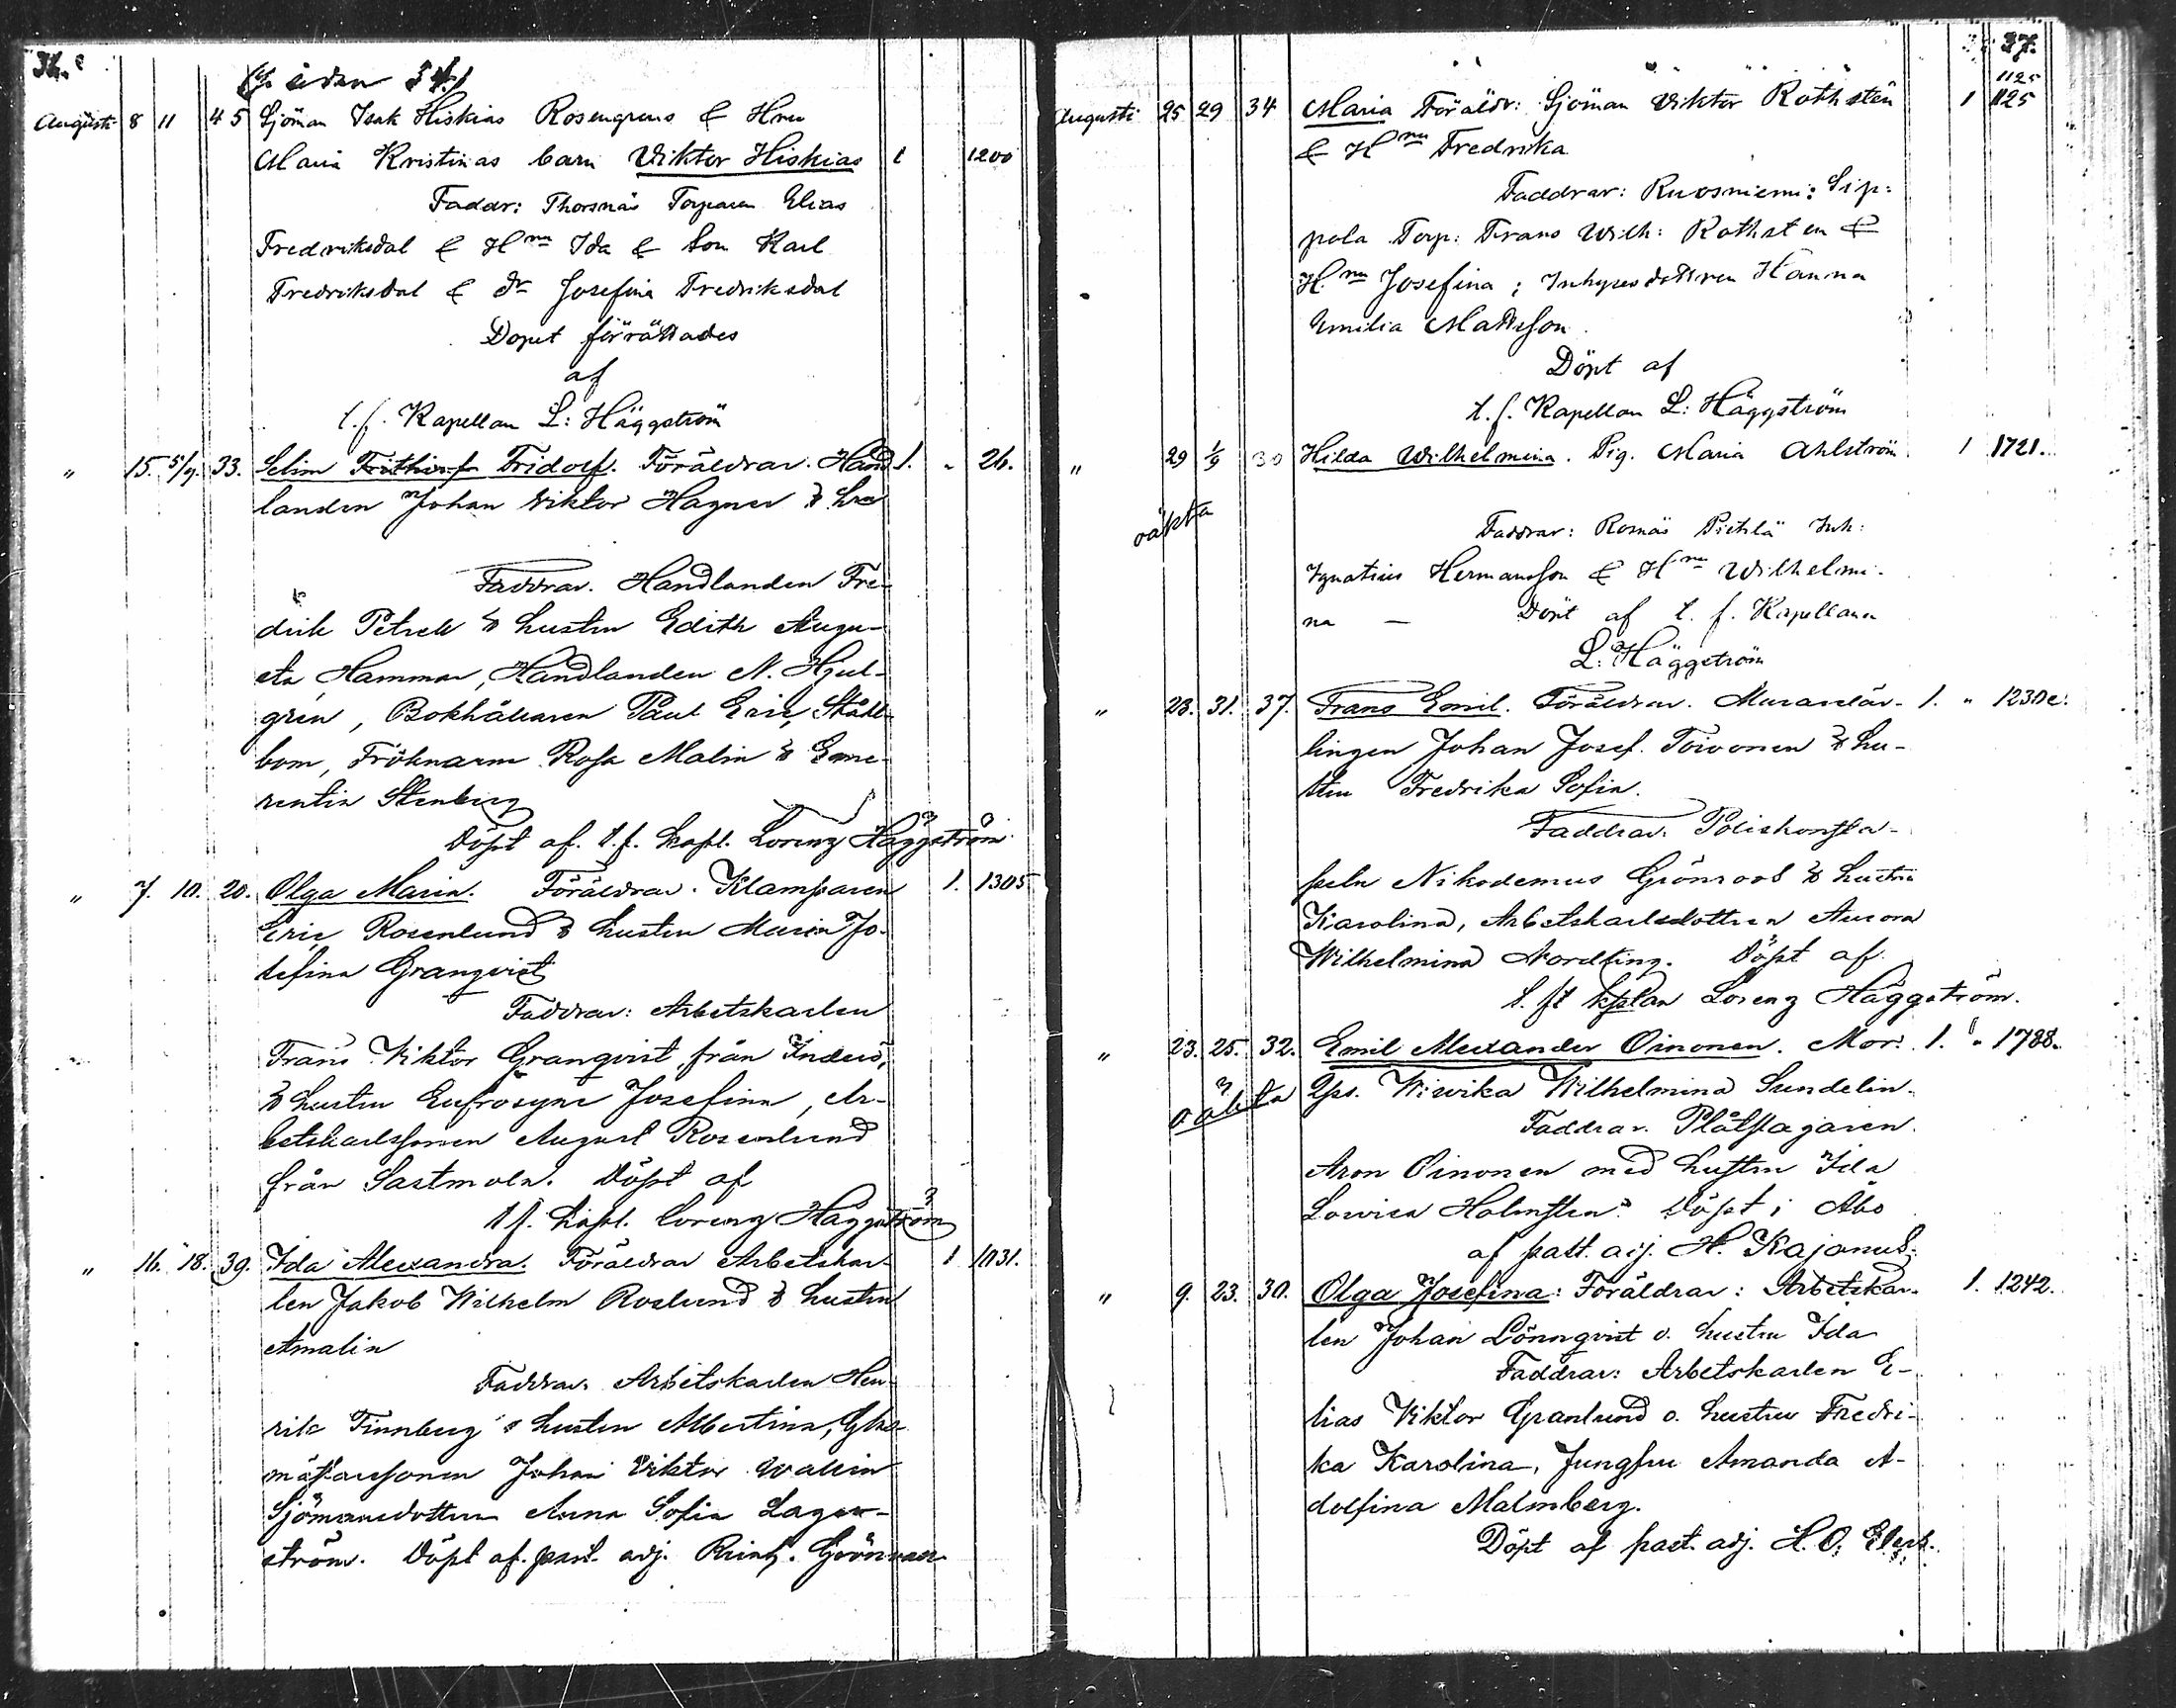 36.
(Ifr sidan 34.)
Augusti 8 11 45 Sjöman Isak Hiskias Rosengrens & Hrus
Maria Kristinas barn Viktor Hiskias 1 1200
Faddr: Thorsnäs Torparen Elias
Fredriksdal & Hru Ida & Son Karl
Fredriksdal & dr Josefina Fredriksdal
Dopet förrättades
af
t.f. Kapellan L: Häggström
" 15. 5/9. 33. Selim Frithiof Fridolf. Föräldrar. Hand- 1. " 26.
landen Johan Viktor Hagner & hru
Faddrar. Handlanden Fre-
drik Petrell & hustru Edith Augu-
sta Hammar, Handlanden N. Hjul-
grén, Bokhållaren Paul Eric Ståhl-
bom, Fröknarne Rosa Malin & Eme-
rentia Stenberg
Döpt af. t.f. kapl. Lorenz Häggström
" 7. 10. 20. Olga Maria. Föräldrar. Klamparen 1. 1305
Eric Rosenlund & hustru Maria Jo-
sefina Granqvist
Faddrar: Arbetskarlen
Frans Viktor Granqvist från Inderö,
& hustru Eufrosyne Josefina, Ar-
betskarlssonen August Rosenlund
från Sastmola. Döpt af
t.f. kapl. Lorenz Häggström
" 16. 18. 39. Ida Alexandra. Föräldrar Arbetskar- 1 1031.
len Jakob Wilhelm Roslund & hustru
Amalia
Faddrar. Arbetskarlen Hen-
rik Finnberg & hustru Albertina, Glas-
mästarssonen Johan Viktor Wallin
Sjömansdottren Anna Sofia Lager-
ström. Döpt af past. adj. Grönvall
37.
1125
Augusti 25 29 34 Maria Föräldr: Sjöman Viktor Rothstén 1 1125
& Hru Fredrika
Faddrar: Ruosniemi: Sip-
pola Torp: Frans Wilh: Rothsten &
Hru Josefina; Inhysesdottren Hanna
Emilia Mattsson.
Döpt af
t.f. Kapellan L: Häggström
" 29 1/9 30 Hilda Wilhelmina. Pig. Maria Ahlström 1 1721.
oäkta
Faddrar: Romäs Pietilä Inh:
Ignatius Hermansson & Hru Wilhelmi-
na — Döpt af t. f. Kapellan
L: Häggström
" 28. 31. 37. Frans Emil. Föräldrar. Murarelär- 1. " 1230e.
lingen Johan Josef. Toivonen & hu-
stru Fredrika Sofia.
Faddrar. Poliskonsta-
peln Nikodemus Grönroos & hustru
Karolina, Arbetskarlsdottren Aurora
Wilhelmina Nordling. Döpt af
t. f. kplan Lorenz Häggström.
" 23. 25. 32. Emil Alexander Oinonen. Mor: 1. " 1788.
oäkta Wiwika Wilhelmina Sundelin.
Faddrar. Plåtslagaren
Aron Oinonen med hustru Ida
Lovisa Holmstén. Döpt i Åbo
af past. adj. H. Kajanus.
" 9. 23. 30. Olga Josefina: Föräldrar: Arbetskar- 1. 1242.
len Johan Lönnqvist o. hustru Ida
Faddrar: Arbetskarlen E-
lias Viktor Granlund o. hustru Fredri-
ka Karolina, Jungfru Amanda A-
dolfina Malmberg.
Döpt af past. adj. H. O.